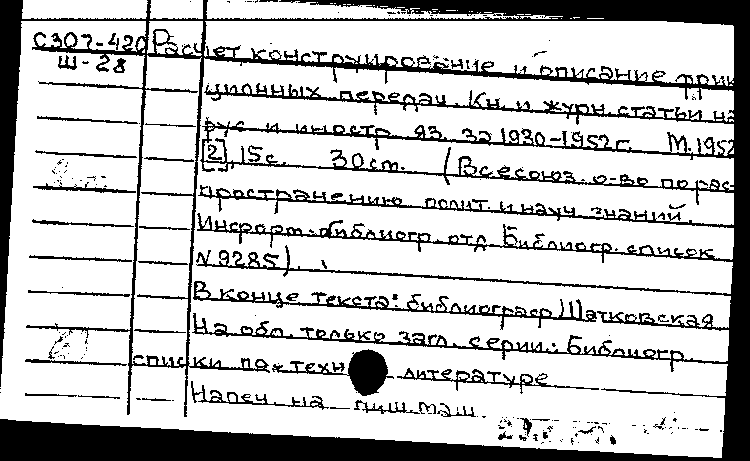 С307-420 Расчет, конструирование и описание фрик
Ш-28
ционных передач. Кн. и журн. статьи на
рус и иностр. яз. за 1930-1952г. М, 1952
[2], 15с. 30см. (Всесоюз. о-во по рас-
пространению полит. и науч. знаний.
Информ.-библиогр. отд. Библиогр. список
N 9285).
В конце текста: библиограф Шатковская
На обл. только загл. серии: Библиогр.
списки по техн литературе
Напеч. на пиш. маш.